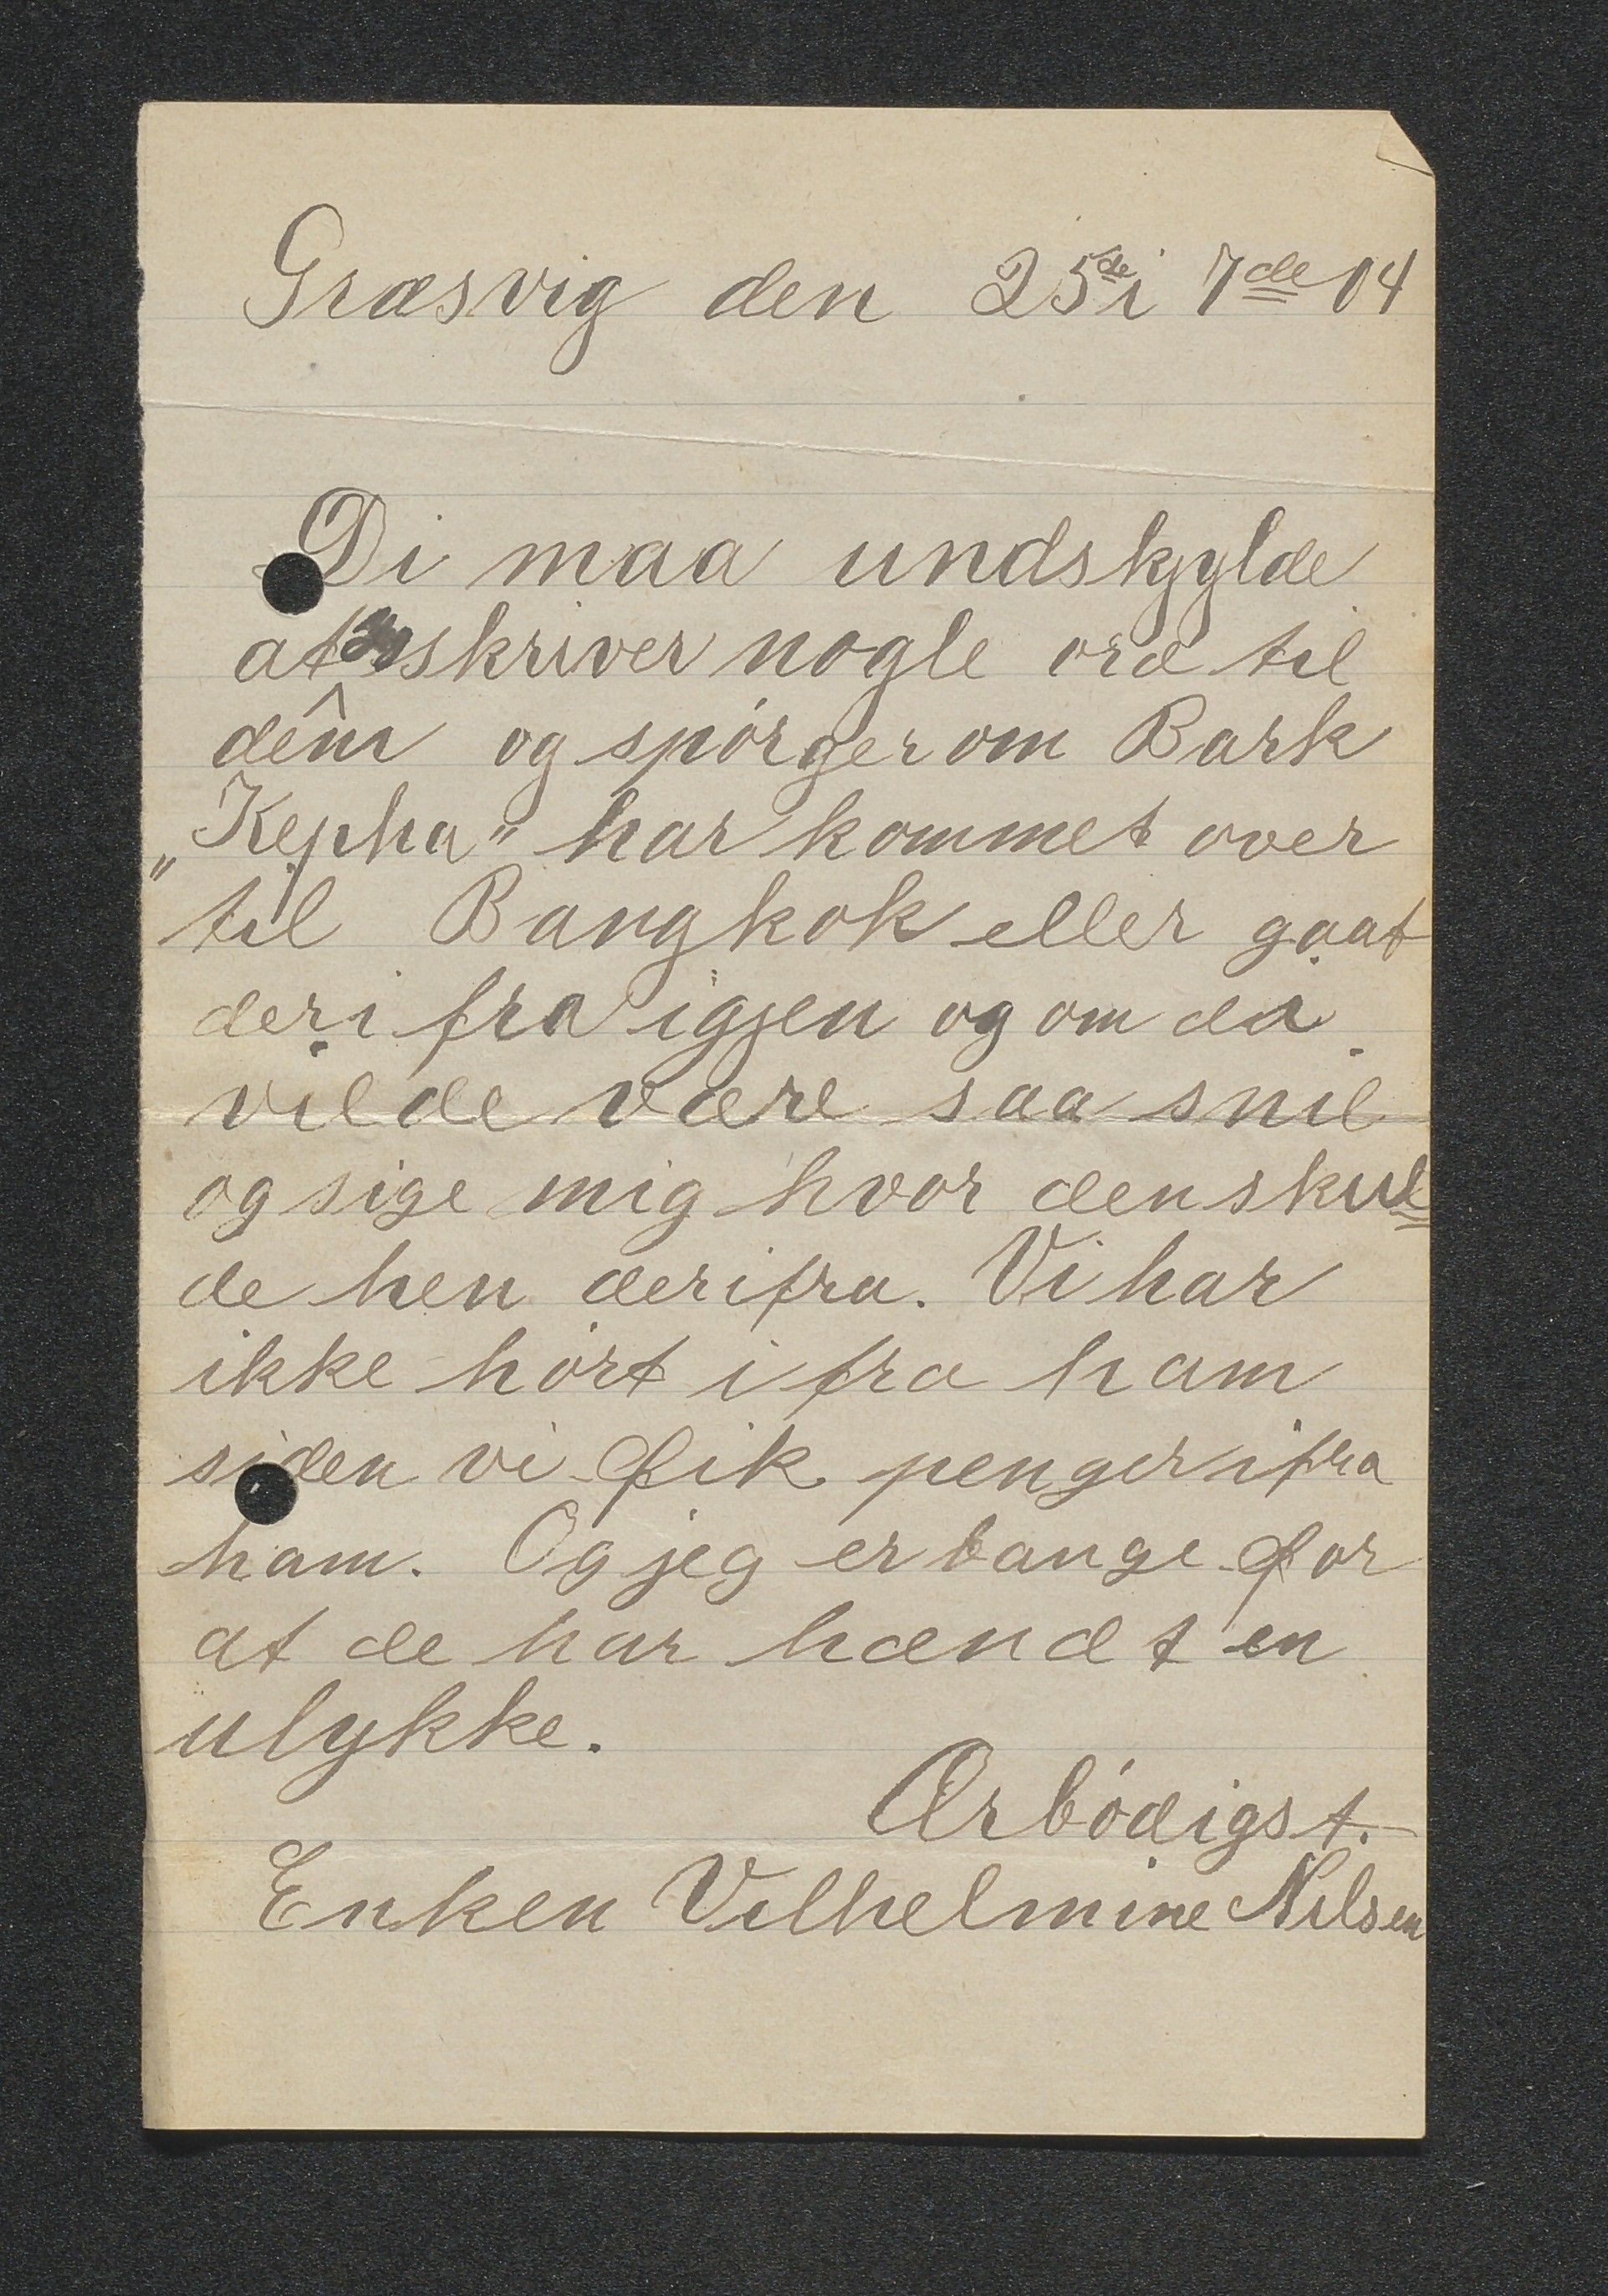 Græsvig den 25de i 7de 04
Di maa undskjylde
at skriver nogle ord til
dêm og spørger om Bark
„Kepha" har kommet over
til Bangkok eller gaat
derifra igjen og om da
vilde være saa snil
og sige mig hvor den skul=
de hen derifra. Vi har
ikke hørt ifra ham
siden vi fik penger ifra
ham. Og jeg er bange for
at de har hændt en
ulykke.
Ærbødigst.
Enken Vilhelmine Nilsen